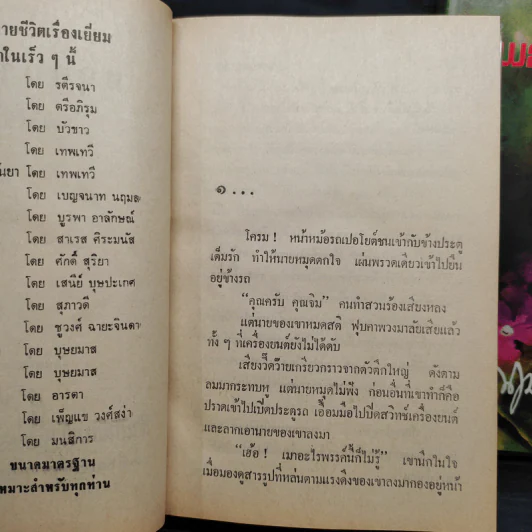 ายชีวิตเรื่องเยี่ยม
ในเร็ว ๆ นี้
โดย รตีรจนา
โดย ตรีอภิรุม
โดย บัวขาว
โดย เทพเทวี
โดย เทพเทวี
โดย เบญจนาท นฤมล
โดย บูรพา อาลักษณ์
โดย สาเรส ศิระมนัส
โดย ศักดิ์ สุริยา
โดย เสนีย์ บุษปะเกศ
โดย สุภาวดี
โดย ชูวงศ์ ฉายะจินดา
โดย บุษยมาส
โดย บุษยมาส
โดย อารตา
โดย เพ็ญแข วงศ์สง่า
โดย มนสิการ
ขนาดมาตรฐาน
หมาะสำหรับทุกท่าน
๑ . . .
โครม ! หน้าหม้อรถเปอโยต์ชนเข้ากับข้างประตู
เต็มรัก ทำให้นายหมุดตกใจ เผ่นพรวดเดียวเข้าไปยืน
อยู่ข้างรถ
“คุณครับ คุณจิม” คนทำสวนร้องเสียงหลง
แต่นายของเขาหมดสติ ฟุบคาพวงมาลัยเสียแล้ว
ทั้ง ๆ ที่เครื่องยนต์ยังไม่ได้ดับ
เสียงวี้ดว้ายเกรียวกราวจากตัวตึกใหญ่ ดังตาม
ลมมากระทบหู แต่นายหมุดไม่ฟัง ก่อนอื่นที่เขาทำก็คือ
ปราดเข้าไปเปิดประตูรถ เอื้อมมือไปปิดสวิทช์เครื่องยนต์
และลากเอานายของเขาลงมา
“เฮ้อ ! เมาอะไรพรรค์นี้ก็ไม่รู้” เขานึกในใจ
เมื่อมองดูสารรูปที่หล่นตามแรงดึงของเขาลงมากองอยู่หน้า